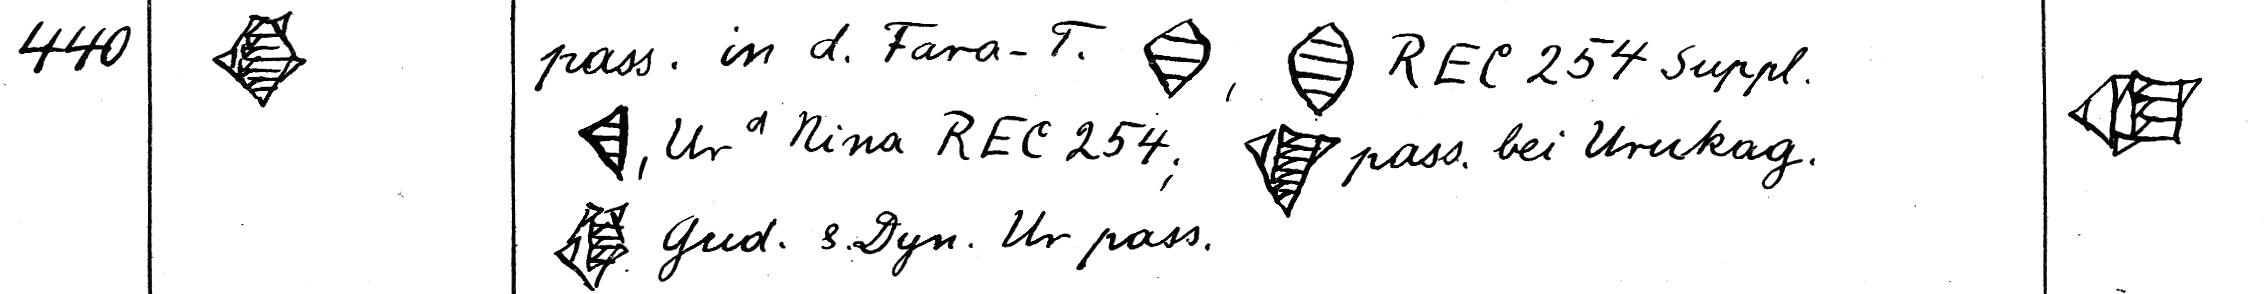 440 pass. in d. Fara-T. , REC 254 Suppl.
, Ur ᵈ Nina REC 254; pass. bei Urukag.
Gud. s. Dyn. Ur pass.